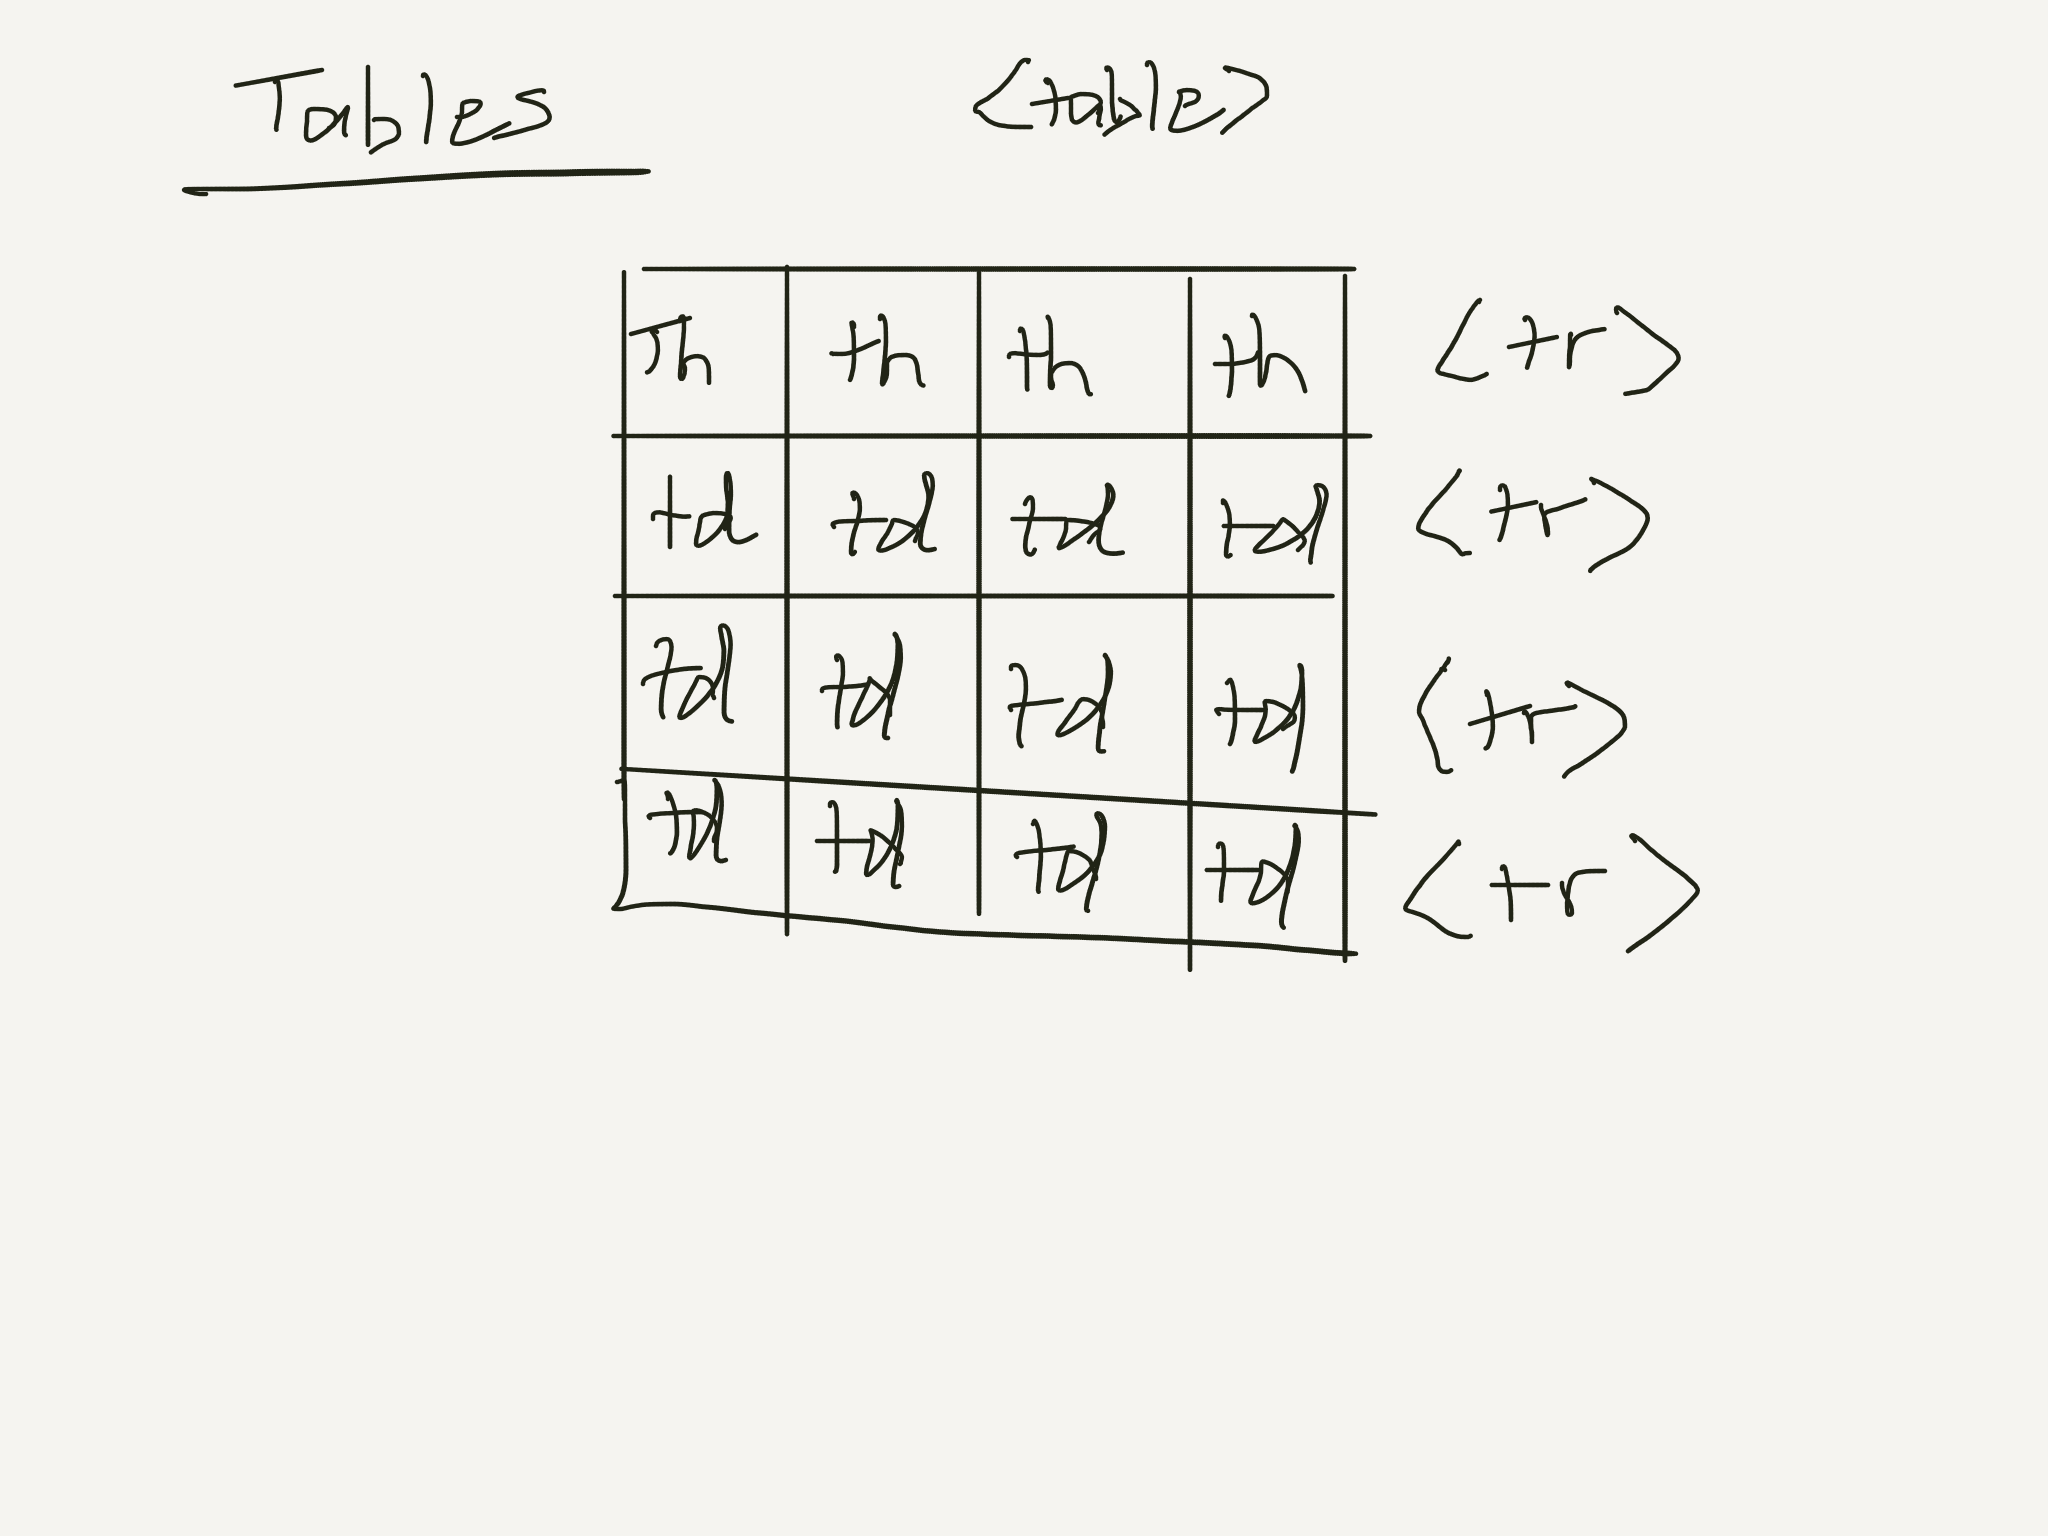 Tables <table>
Th th th th <tr>
td td td td <tr>
td td td td <tr>
td td td td <tr>